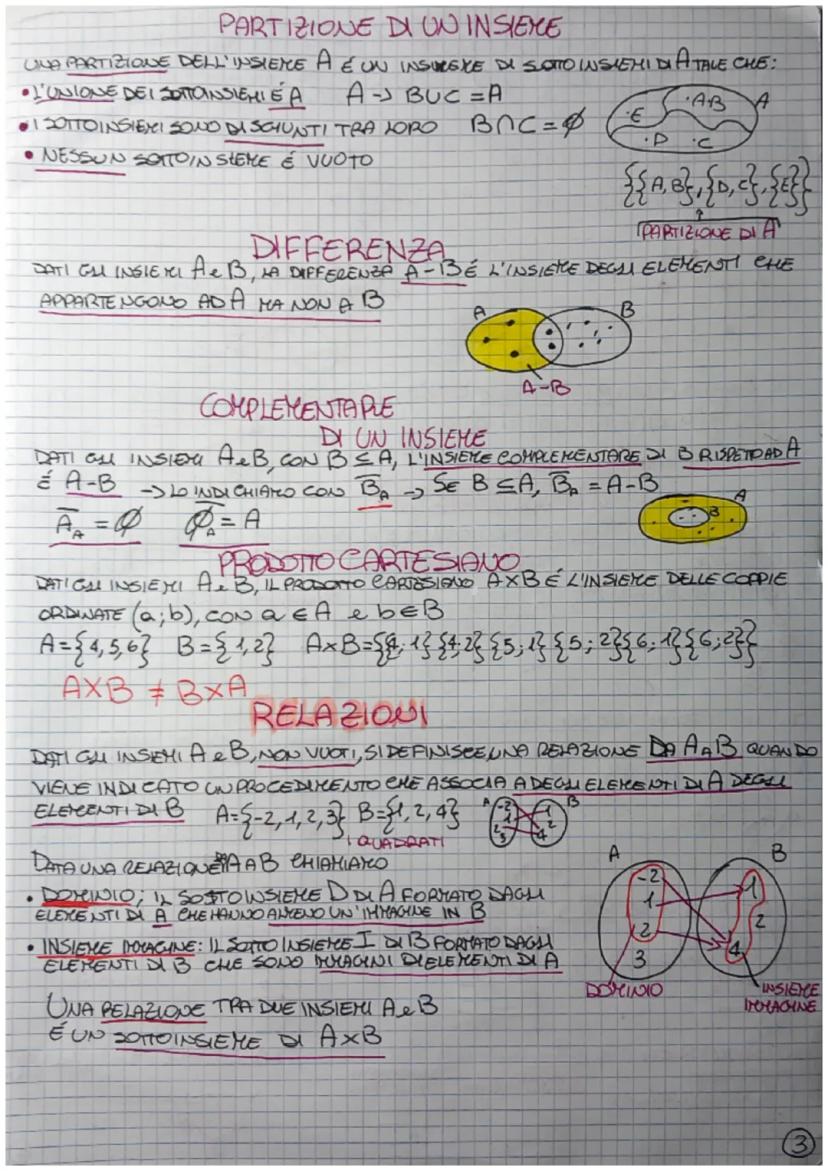 PARTIZIONE DI UN INSIEME
UNA PARTIZIONE DELL'INSIEME A É UN INSIEME DI SOTTOINSIEMI DI A TALE CHE:
• L'UNIONE DEI SOTTOINSIEMI É A A → B∪C = A
• I SOTTOINSIEMI SONO DISGIUNTI TRA LORO B∩C = ∅
• NESSUN SOTTOINSIEME É VUOTO
·E ·AB A
·D ·C
{{A,B},{D,C},{E}}
PARTIZIONE DI A
DIFFERENZA
DATI GLI INSIEMI A e B, LA DIFFERENZA A-B É L'INSIEME DEGLI ELEMENTI CHE
APPARTENGONO AD A MA NON A B
A B
A-B
COMPLEMENTARE
DI UN INSIEME
DATI GLI INSIEMI A e B, CON B ⊆ A, L'INSIEME COMPLEMENTARE DI B RISPETTO AD A
É A-B → LO INDICHIAMO CON B̅_A → SE B ⊆ A, B̅_A = A-B
A̅_A = ∅ ∅̅_A = A
B A
PRODOTTO CARTESIANO
DATI GLI INSIEMI A e B, IL PRODOTTO CARTESIANO A×B É L'INSIEME DELLE COPPIE
ORDINATE (a;b), CON a ∈ A e b ∈ B
A={4,5,6} B={1,2} A×B={{4;1}{4;2}{5;1}{5;2}{6;1}{6;2}}
A×B ≠ B×A
RELAZIONI
DATI GLI INSIEMI A e B, NON VUOTI, SI DEFINISCE UNA RELAZIONE DA A A B QUANDO
VIENE INDICATO UN PROCEDIMENTO CHE ASSOCIA A DEGLI ELEMENTI DI A DEGLI
ELEMENTI DI B A={-2,1,2,3} B={1,2,4}
I QUADRATI
A -2 1 2 3 1 2 4 B
DATA UNA RELAZIONE DA A A B CHIAMIAMO
• DOMINIO; IL SOTTOINSIEME D DI A FORMATO DAGLI
ELEMENTI DI A CHE HANNO ALMENO UN'IMMAGINE IN B
• INSIEME IMMAGINE: IL SOTTOINSIEME I DI B FORMATO DAGLI
ELEMENTI DI B CHE SONO IMMAGINI DI ELEMENTI DI A
A B
-2
1 1
2 2
3 4
DOMINIO INSIEME
IMMAGINE
UNA RELAZIONE TRA DUE INSIEMI A e B
É UN SOTTOINSIEME DI A×B
3